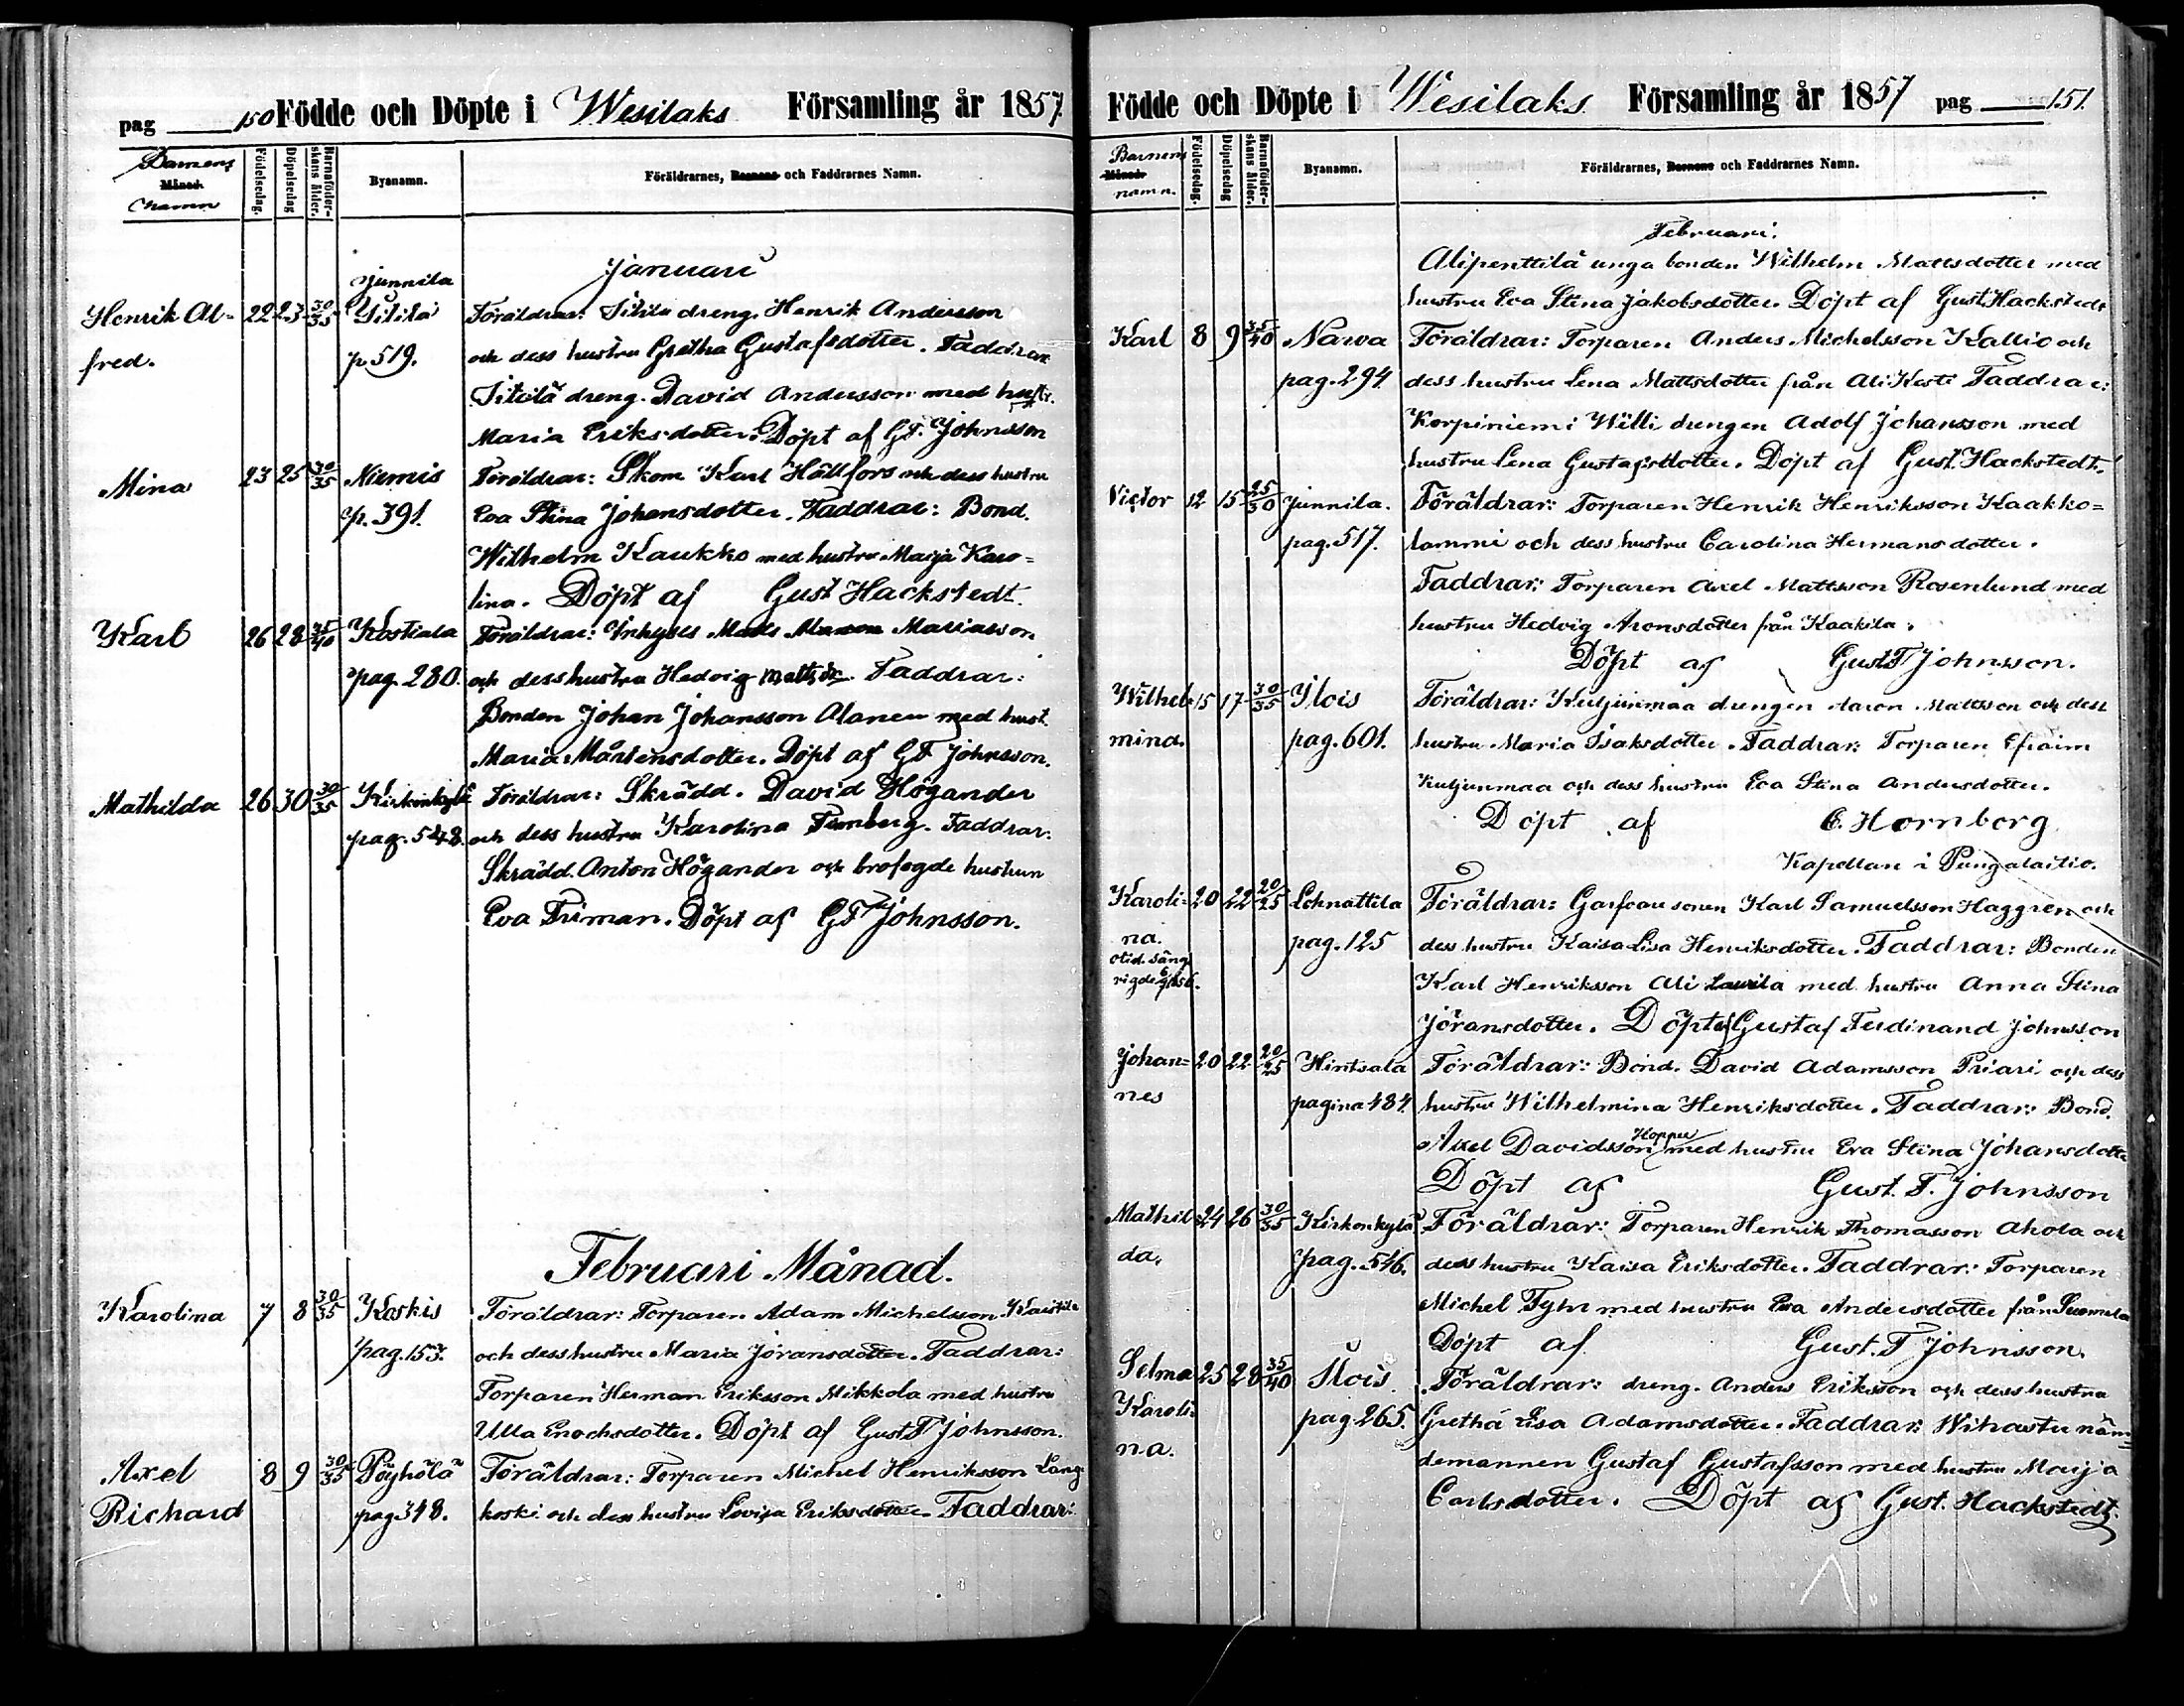 pag 150 Födde och Döpte i Wesilaks Församling år 1857.
Barnens Månad. namn
Födelsedag.
Döpelsedag
Barnaföder-
skans ålder.
Byanamn.
Föräldrarnes, Barnens och Faddrarnes Namn.
Januari
Junnila
Henrik Al- 22 23 30/35 Sitila Föräldrar: Sitila dreng. Henrik Andersson
fred. p. 519. och dess hustru Gretha Gustafsdotter. Faddrar
Sitilä dreng. David Andersson med hust.
Maria Eriksdotter. Döpt af G.F. Johnsson
Mina 23 25 30/35 Niemis Föräldrar: Skom. Karl Hällfors och dess hustru
p. 391. Eva Stina Johansdotter. Faddrar: Bond.
Wilhelm Kaukko med hustru Maija Karo-
lina. Döpt af Gust Hackstedt.
Karl 26 28 35/40 Kostiala Föräldrar: Inhyses Matts Mariasson
pag. 280. och dess hustru Hedvig Matts dr. Faddrar:
Bonden Johan Johansson Alanen med hust.
Maria Mårtensdotter. Döpt af GF Johnsson.
Mathilda 26 30 30/35 Kirkonkylä Föräldrar: Skrädd. David Högander
pag. 548. och dess hustru Karolina. Faddrar:
Skrädd. Anton Högander och brofogde hustrun
Eva Friman. Döpt af GF Johnsson.
Februari Månad.
Karolina 7 8 30/35 Koskis Föräldrar: Torparen Adam Michelsson
pag. 153. och dess hustru Maria Jöransdotter. Faddrar:
Torparen Herman Eriksson Mikkola med hustru
Ulla Enochsdotter. Döpt af Gust F Johnsson.
Axel 8 9 30/35 Pöyhölä Föräldrar: Torparen Michel Henriksson Lang
Richard pag 348. koski och dess hustru Lovisa Eriksdotter Faddrar:
Födde och Döpte i Wesilaks Församling år 1857 pag 151.
Barnens Månad. namn.
Födelsedag.
Döpelsedag
Barnaföder-
skans ålder.
Byanamn.
Föräldrarnes, Barnens och Faddrarnes Namn.
Februari.
Alipenttilä unga bonden Wilhelm Mattsdotter med
hustru Eva Stina Jakobsdotter. Döpt af Gust Hackstedt
Karl 8 9 35/40 Narva Föräldrar: Torparen Anders Michelsson Kallio och
pag. 294. dess hustru Lena Mattsdotter från Ali Kesti Faddrar:
Korpiniemi Willi drengen Adolf Johansson med
hustru Lena Gustafsdotter. Döpt af Gust. Hackstedt.
Victor 12 15 25/30 Junnila. Föräldrar: Torparen Henrik Henriksson Kaakko-
pag. 517. lammi och dess hustru Carolina Hermansdotter.
Faddrar: Torparen Axel Mattsson Rosenlund med
hustru Hedvig Aronsdotter från Kaakila.
Döpt af Gust F Johnsson.
Wilhel- 15 17 30/35 Ylois Föräldrar: Kuljunmaa drengen Aaron Mattsson och dess
mina. pag. 601. hustru Maria Isaksdotter. Faddrar: Torparen Efraim
Kuljunmaa och dess hustru Eva Stina Andersdotter.
Döpt af C. Hornborg
Kapellan i Pungalaitio.
Karoli- 20 22 20/25 Lehnattila Föräldrar: sonen Karl Samuelsson Haggren och
na. pag. 125 dess hustru Kaisa Lisa Henriksdotter. Faddrar: Bonden
Karl Henriksson Ali Laurila med hustru Anna Stina
Jöransdotter. Döpt af Gustaf Ferdinand Johnsson
Johan- 20 22 20/25 Hintsala Föräldrar: Bond. David Adamsson Priari och dess
nes pagina 484. hustru Wilhelmina Henriksdotter. Faddrar: Bond.
Axel Davidsson Hoppu med hustru Eva Stina Johansdotter
Döpt af Gust. F. Johnsson
Mathil- 24 26 30/35 Kirkonkylä Föräldrar: Torparen Henrik Thomasson Ahola och
da. pag. 546. dess hustru Kaisa Eriksdotter. Faddrar: Torparen
Michel Fyhr med hustru Eva Andersdotter från Suomela
Döpt af Gust. F Johnsson.
Selma 25 28 35/40 Ylois. Föräldrar: dreng. Anders Eriksson och dess hustru
Karoli- pag. 265. Gretha Lisa Adamsdotter. Faddrar: näm-
na. demannen Gustaf Gustafsson med hustru Maija
Carlsdotter. Döpt af Gust. Hackstedt.